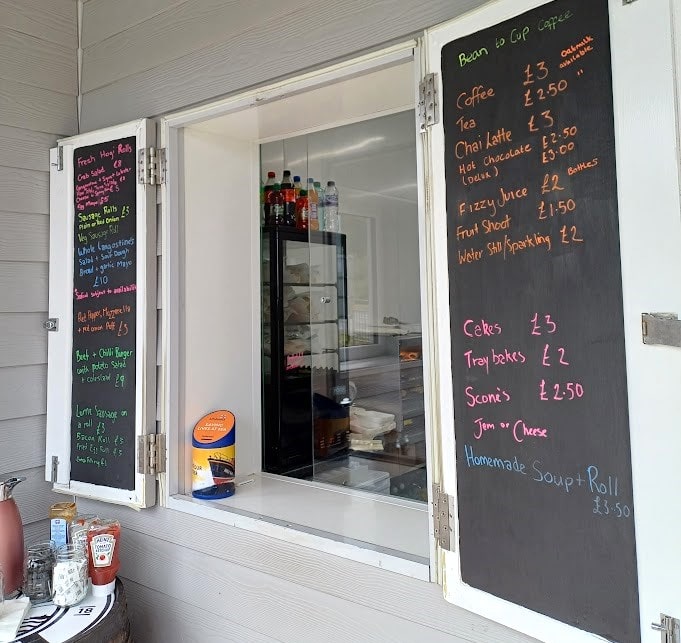 Fresh Hogi Rolls
Crab Salad £8
Egg Mayo £5
Sausage Rolls £3
Plain or Red Onion
Veg Sausage Roll
Whole Langostines
Salad + Sour Dough
Bread + garlic Mayo
£10
*Seafood subject to availability
Hot Pepper, Mozzarella
+ red onion Puff £3
Beef + Chilli Burger
with potato Salad
+ coleslaw £9
Lorne Sausage on
a roll £3
Bacon Roll £3
Fried Egg Roll £3
HEINZ
TOMATO
KETCHUP
18
Bean to Cup Coffee
Coffee £3 Oatmilk available
Tea £2.50 "
Chai Latte £3
Hot Chocolate £2.50
(Delux) £3.00
Fizzy Juice £2 Bottles
Fruit Shoot £1.50
Water Still/Sparkling £2
Cakes £3
Tray bakes £2
Scone's £2.50
Jam or Cheese
Homemade Soup + Roll
£3.50